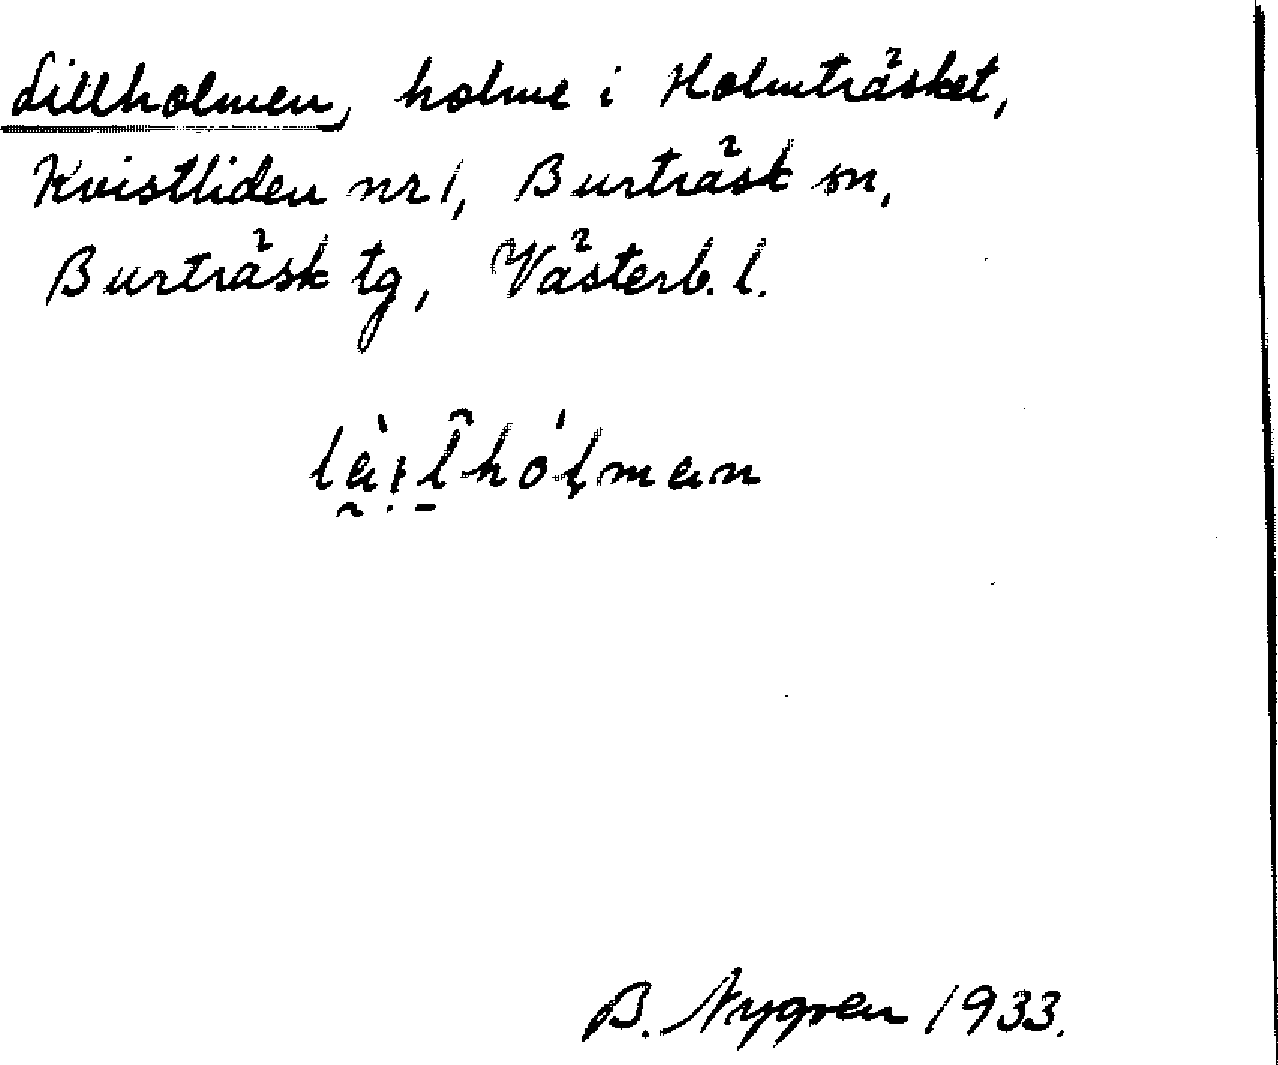 Lillholmen, holme i Holmträsket,
Kvistliden nr 1, Burträsk sn,
Burträsk tg, Västerb. l.
B. Nygren 1933.